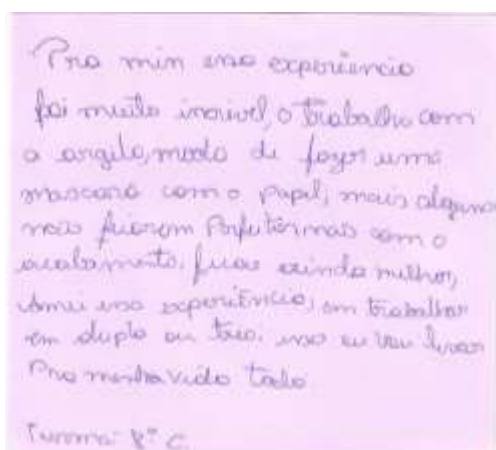 Pra min essa experiencia
foi muito incrivel, o trabalho com
a argila, modo de fazer uma
mascara com o papel, mais algumas
não ficaram Perfeitas mais com o
acabamento. ficas ainda milhor,
Amei essa experiência, em trabalhar
em dupla ou trio. isso eu vou levar
Pra minha vida toda
Turma: 8° C.